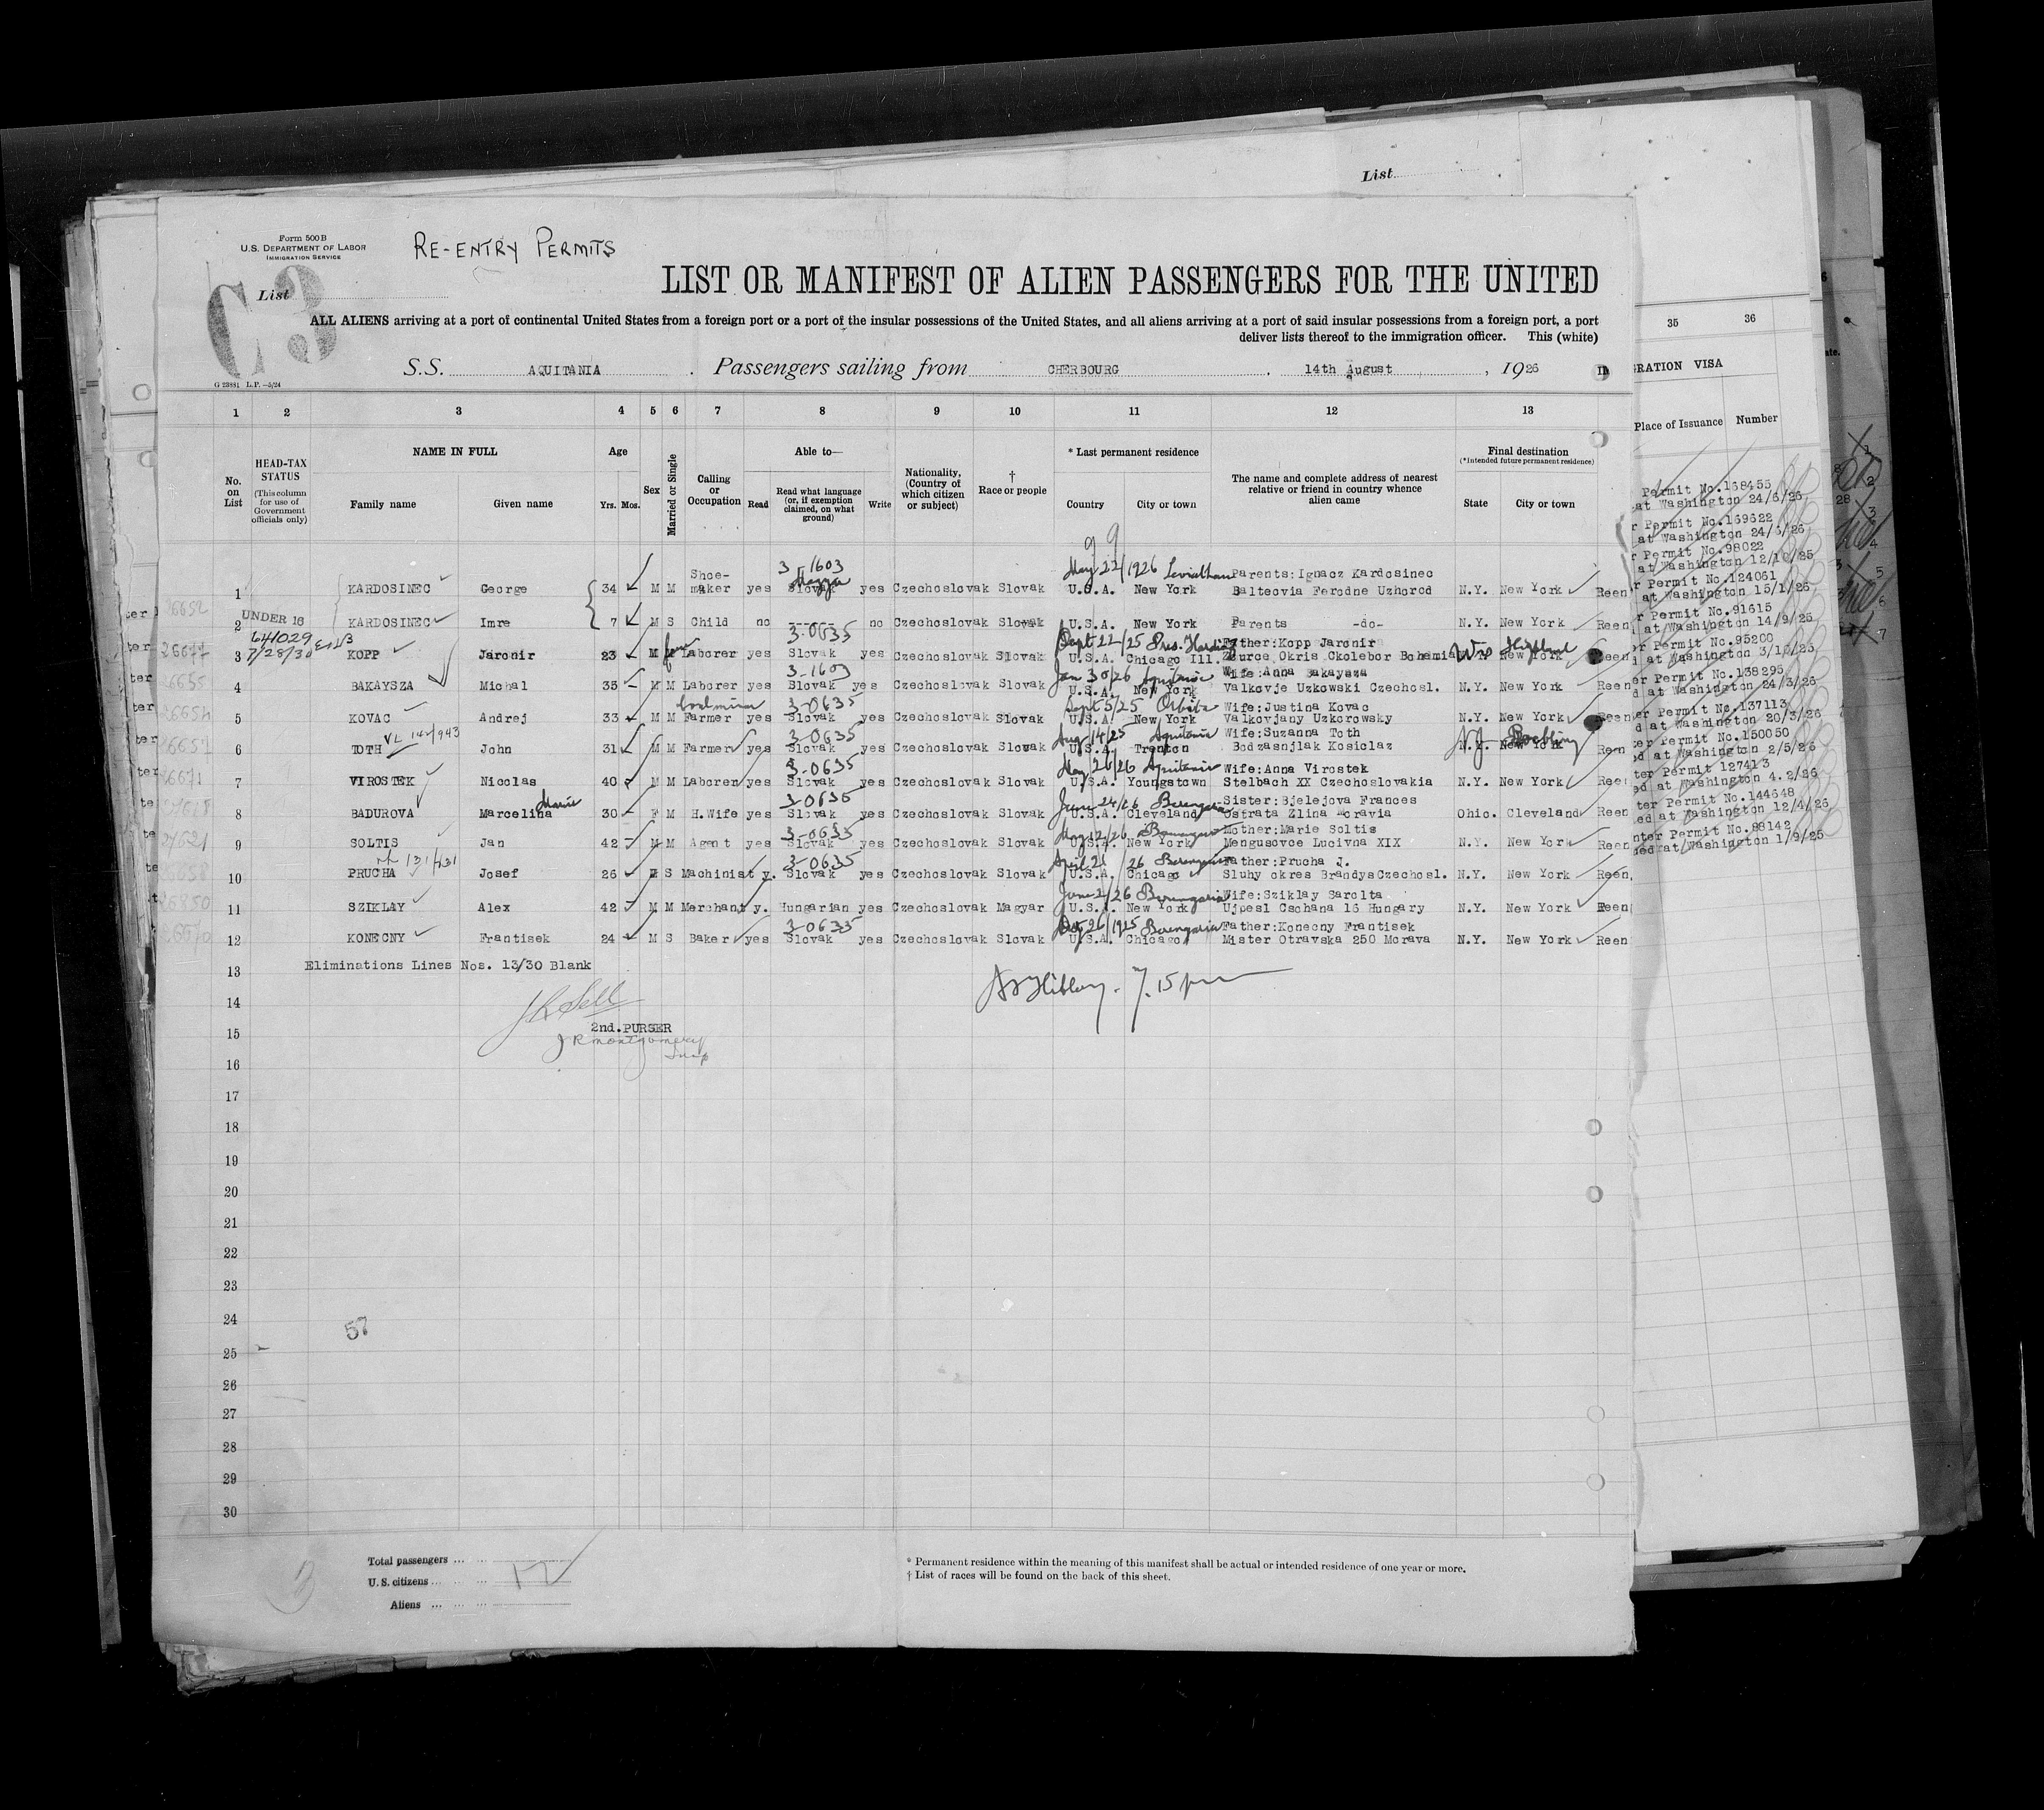 List
Form 500 B
U.S. DEPARTMENT OF LABOR
IMMIGRATION SERVICE
RE-ENTRY PERMITS
C3
List
LIST OR MANIFEST OF ALIEN PASSENGERS FOR THE UNITED
ALL ALIENS arriving at a port of continental United States from a foreign port or a port of the insular possessions of the United States, and all aliens arriving at a port of said insular possessions from a foreign port, a port
deliver lists thereof to the immigration officer. This (white)
S.S. AQUITANIA . Passengers sailing from CHERBOURG , 14th August , 1926
G 23881 L.P.—5/24
1 2 3 4 5 6 7 8 9 10 11 12 13
No. on List
HEAD-TAX STATUS (This column for use of Government officials only)
NAME IN FULL
Family name Given name
Age Yrs. Mos.
Sex
Married or Single
Calling or Occupation
Able to—
Read Read what language (or, if exemption claimed, on what ground) Write
Nationality, (Country of which citizen or subject)
† Race or people
* Last permanent residence
Country City or town
The name and complete address of nearest relative or friend in country whence alien came
Final destination
(*Intended future permanent residence)
State City or town
99
3-1603 May 22/1926 Leviathan Parents:Ignacz Kardosinec
1 KARDOSINEC George 34 M M Shoe-maker yes Slovak yes Czechoslovak Slovak U.S.A. New York Balteovia Ferodne Uzhorod N.Y. New York Reen
UNDER 16
2 KARDOSINEC Imre 7 M S Child no ----- no Czechoslovak Slovak U.S.A. New York Parents -do- N.Y. New York Reen
641029
7/28/30
3-0635 Sept 22/25 Pres. Harding Father:Kopp Jaronir
3 KOPP Jaronir 23 M Laborer yes Slovak yes Czechoslovak Slovak U.S.A. Chicago Ill. Okris Ckolebor Bohemia Wis Highland New York Reen
3-1603 Jan 30/26 Aquitania Wife:Anna Bakaysza
4 BAKAYSZA Michal 35 M M Laborer yes Slovak yes Czechoslovak Slovak U.S.A. New York Valkovje Uzkowski Czechosl. N.Y. New York Reen
Coalminer 3-0635 Sept 5/25 Orbita Wife:Justina Kovac
5 KOVAC Andrej 33 M M Farmer yes Slovak yes Czechoslovak Slovak U.S.A. New York Valkovjany Uzkorowsky N.Y. New York Reen
3-0635 Aug 14/25 Aquitania Wife:Suzanna Toth
6 TOTH John 31 M M Farmer yes Slovak yes Czechoslovak Slovak U.S.A. Trenton Bodzasnjlak Kosiclaz N.J. Roebling N.Y. New York Reen
3-0635 May 26/26 Aquitania Wife:Anna Virostek
7 VIROSTEK Nicolas 40 M M Laborer yes Slovak yes Czechoslovak Slovak U.S.A. Youngstown Stelbach XX Czechoslovakia N.Y. New York Reen
Marie 3-0635 June 24/26 Berengaria Sister:Bjelejova Frances
8 BADUROVA Marcelina 30 F M H.Wife yes Slovak yes Czechoslovak Slovak U.S.A. Cleveland Ostrata Zlina Moravia Ohio. Cleveland Reen
3-0635 May 12/26 Berengaria Mother:Marie Soltis
9 SOLTIS Jan 42 M M Agent yes Slovak yes Czechoslovak Slovak U.S.A. New York Mengusovce Lucivna XIX N.Y. New York Reen
3-0635 April 21/26 Berengaria Father:Prucha J.
10 PRUCHA Josef 26 S Machinist y. Slovak yes Czechoslovak Slovak U.S.A. Chicago Sluhy okres BrandysCzechosl. N.Y. New York Reen
June 2/26 Berengaria Wife:Sziklay Sarolta
11 SZIKLAY Alex 42 M M Merchant y. Hungarian yes Czechoslovak Magyar U.S.A. New York Ujpesl Cschana 16 Hungary N.Y. New York Reen
3-0635 26/1925 Berengaria Father:Konecny Frantisek
12 KONECNY Frantisek 24 M S Baker yes Slovak yes Czechoslovak Slovak U.S.A. Chicago Mister Otravska 250 Morava N.Y. New York Reen
Eliminations Lines Nos. 13/30 Blank
13
14
2nd. PURSER
15
J R Montgomery
16
7.15 pm
17
18
19
20
21
22
23
24
57
25
26
27
28
29
30
Total passengers
U.S. citizens
Aliens
12
* Permanent residence within the meaning of this manifest shall be actual or intended residence of one year or more.
† List of races will be found on the back of this sheet.
35 36
GRATION VISA
Place of Issuance Number
Permit No.168455
at Washington 24/6/26
r Permit No.169622
at Washington 24/6/26
r Permit No.98022
at Washington 12/10/25
r Permit No.124061
at Washington 15/1/26
r Permit No.91615
at Washington 14/9/25
r Permit No.95200
d at Washington 3/10/25
er Permit No.138295
d at Washington 24/3/26
er Permit No.137113
d at Washington 20/3/26
er Permit No.150050
ed at Washington 2/5/26
ter Permit 127413
ed at Washington 4.2/26
ter Permit No.144648
ed at Washington 12/4/26
nter Permit No.88142
ued at Washington 1/9/25